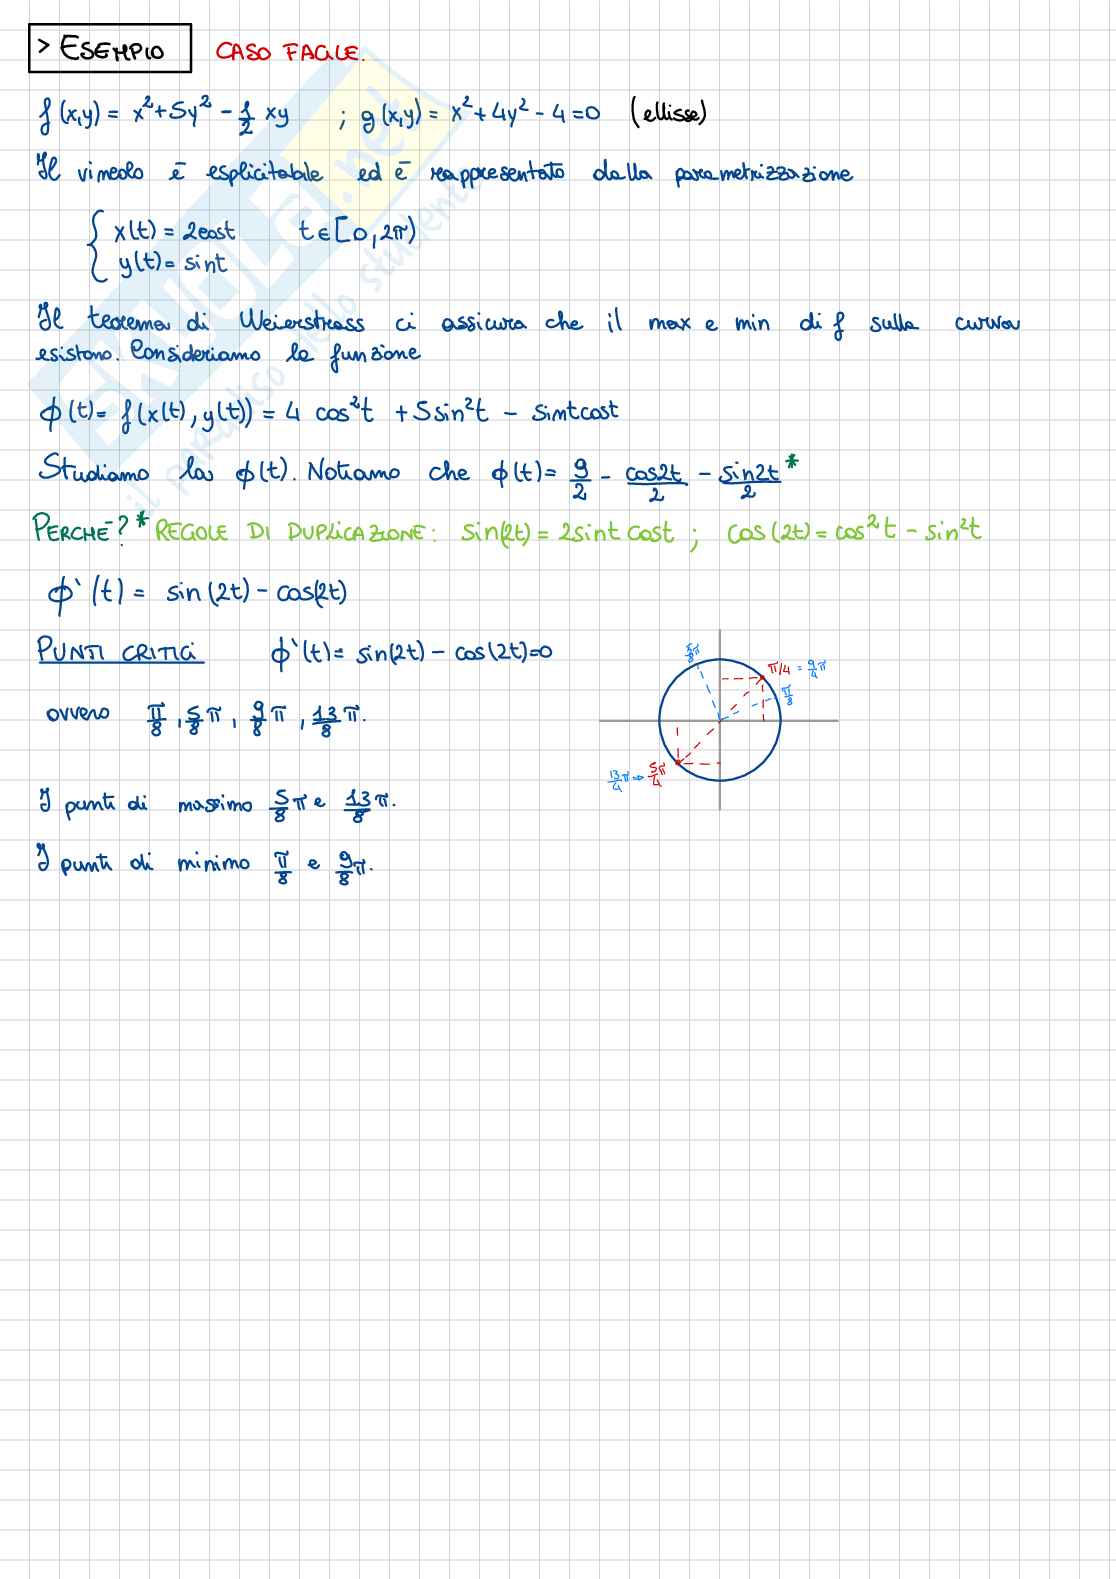 > ESEMPIO CASO FACILE.
f(x,y) = x²+5y² - 1/2 xy ; g(x,y) = x²+4y² - 4 = 0 (ellisse)
Il vincolo è esplicitabile ed è rappresentato dalla parametrizzazione
{ x(t) = 2cost t ∈ [0, 2π)
y(t) = sint
Il teorema di Weierstrass ci assicura che il max e min di f sulla curva
esistono. Consideriamo la funzione
ϕ(t) = f(x(t), y(t)) = 4 cos²t + 5sin²t - sintcost
Studiamo la ϕ(t). Notiamo che ϕ(t) = 9/2 - cos2t/2 - sin2t/2 *
PERCHÈ? * REGOLE DI DUPLICAZIONE: sin(2t) = 2sint cost ; cos(2t) = cos²t - sin²t
ϕ'(t) = sin(2t) - cos(2t)
PUNTI CRITICI ϕ'(t) = sin(2t) - cos(2t) = 0
ovvero π/8, 5/8 π, 9/8 π, 13/8 π.
5/8 π
π/4 = 9/4 π
π/8
13/4 π => 5/4 π
I punti di massimo 5/8 π e 13/8 π.
I punti di minimo π/8 e 9/8 π.
SKUOLA.net
il paradiso dello studente